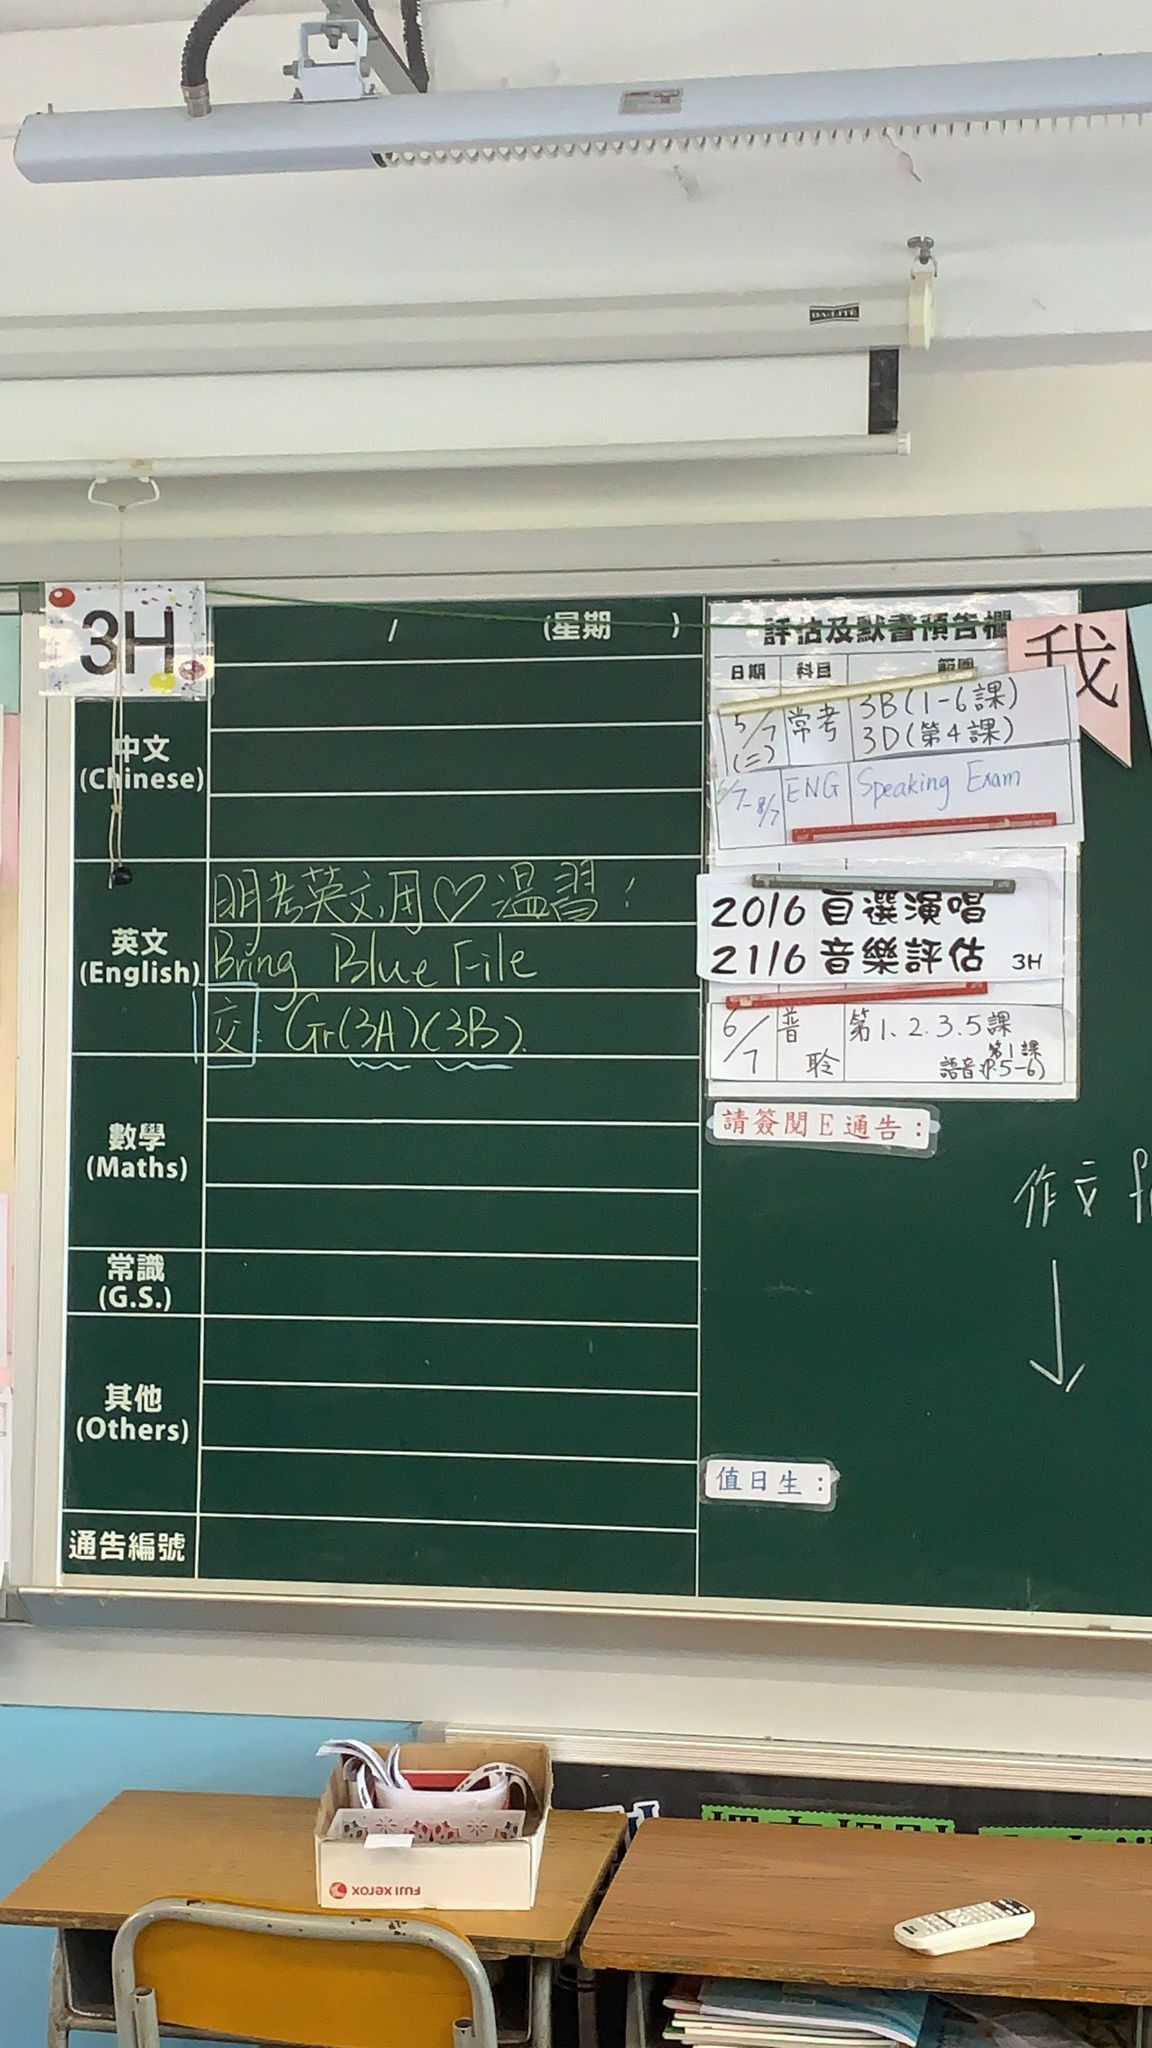 DA-LITE
3H
/ (星期 )
中文
(Chinese)
英文
(English)
明考英文,用♡溫習!
Bring Blue File
交: Gr(3A)(3B).
數學
(Maths)
常識
(G.S.)
其他
(Others)
通告編號
評估及默書預告欄
日期 科目 範圍
5/7 (二) 常考 3B(1-6課)
3D(第4課)
5/7-8/7 ENG Speaking Exam
20/6 自選演唱
21/6 音樂評估 3H
6/7 普聆 第1.2.3.5課
第1課
語音(P.5-6)
我
請簽閱E通告:
作文
值日生:
FUJI XEROX